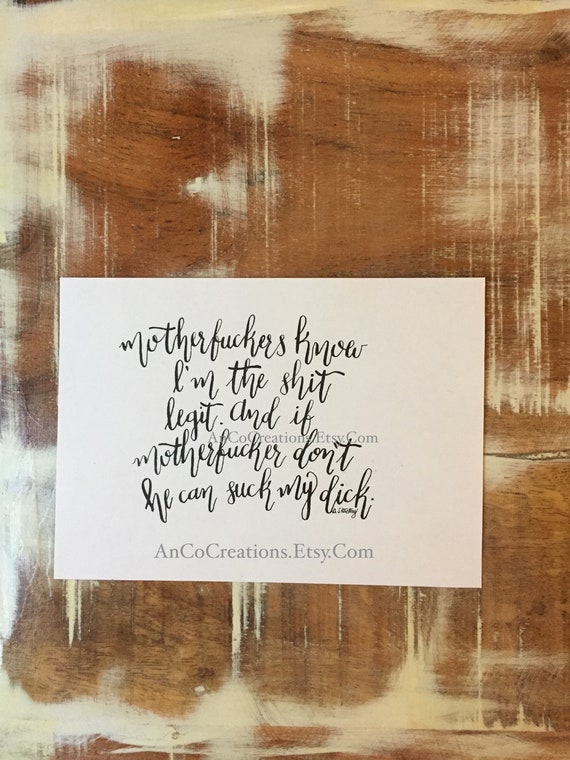 motherfuckers know
I'm the shit
legit. And if
AnCoCreations.Etsy.Com
motherfucker don't
he can suck my dick.
AnCoCreations.Etsy.Com